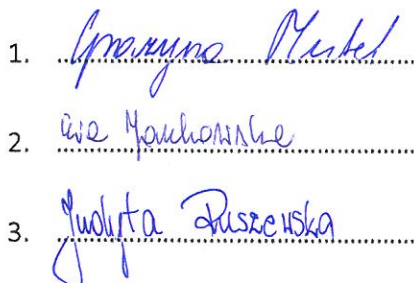 1. Grażyna
2. Ewa Jankowska
3. Judyta Ruszewska